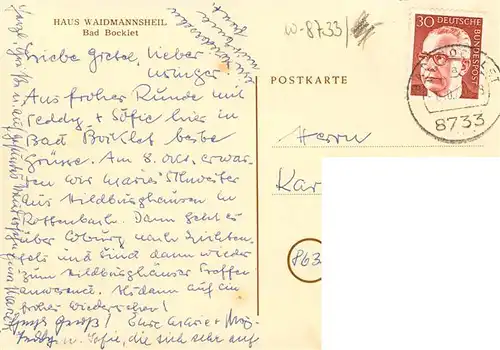 HAUS WAIDMANNSHEIL
Bad Bocklet
Liebe Gretel, lieber
Aus froher Runde mit
Teddy + Sofie hier in
Bad Bocklet beste
Grüsse. Am 8. Okt. erwar-
ten wir Maries Schwester
aus Hildburghausen in
Rottenbach. Dann geht es
über Coburg nach Lichten-
fels und sind dann wieder
zum Hildburghäuser Treffen
anwesend. Alsdann auf ein
frohes Wiedersehen!
Eure Marie +
u. Sofie, die sich sehr auf
POSTKARTE
W-8733/
30 DEUTSCHE BUNDESPOST
8733
Herrn
Kar
863